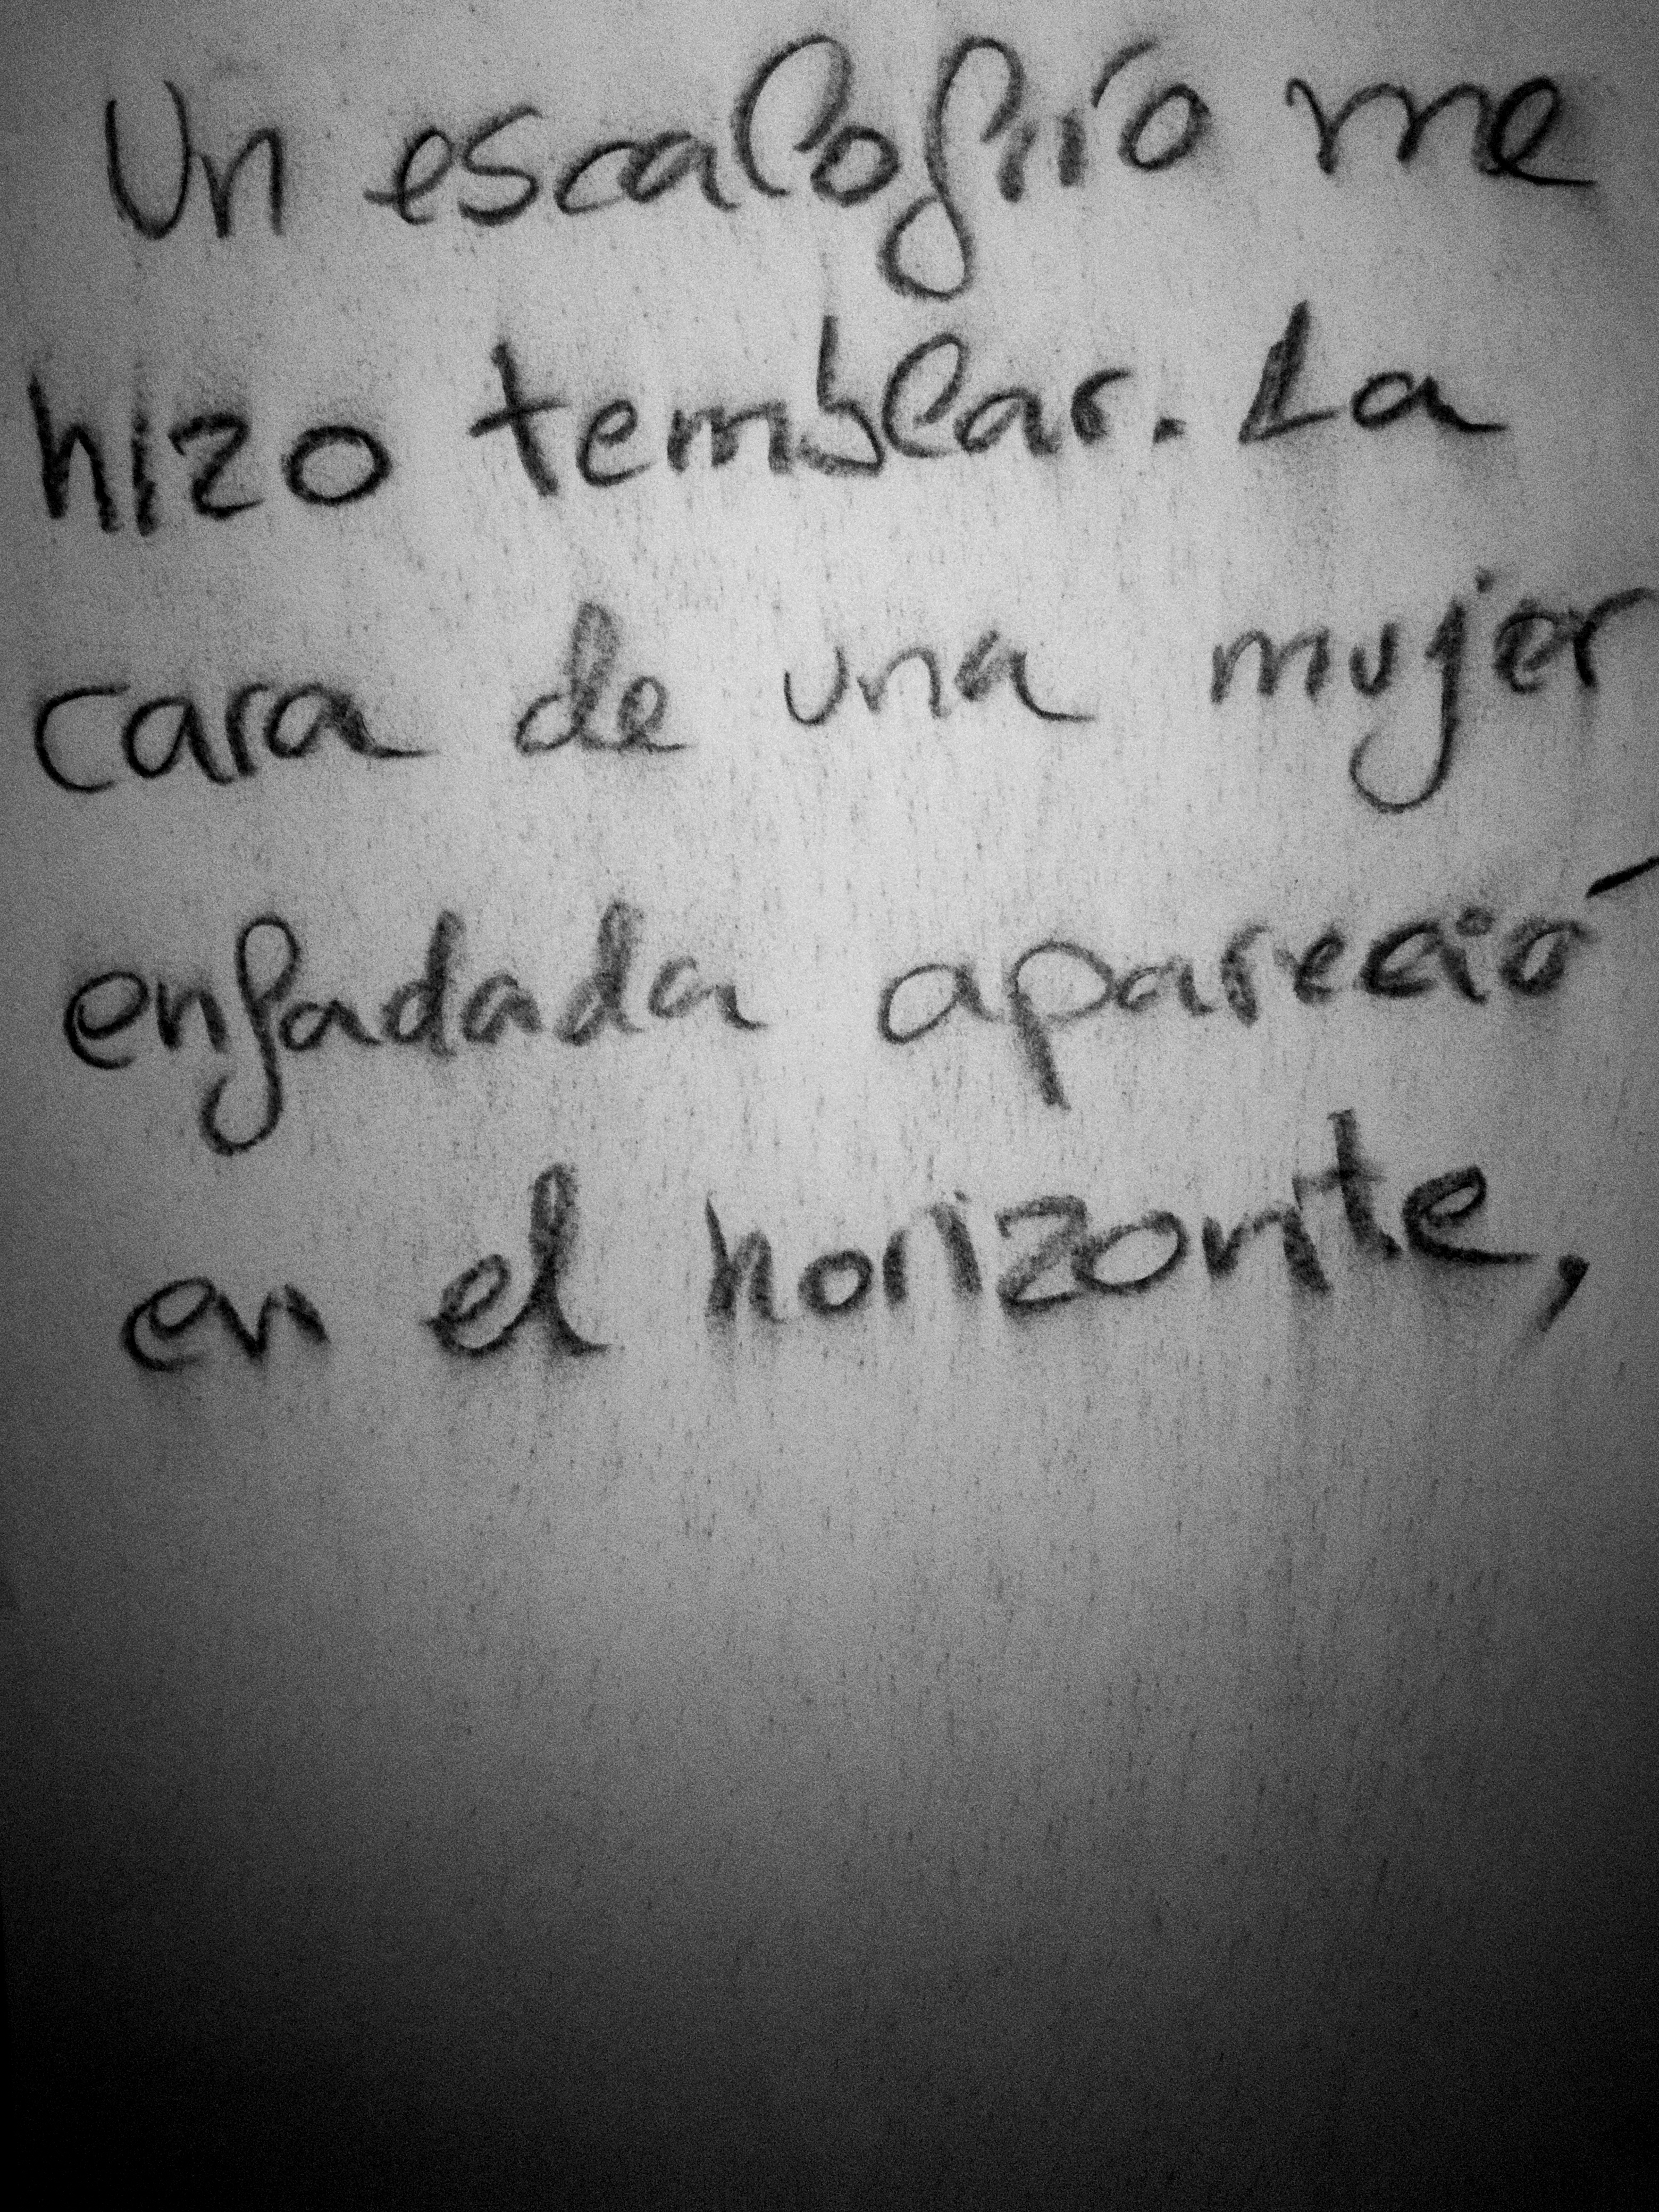 Un escalofrío me
hizo temblar. La
cara de una mujer
enfadada apareció
en el horizonte,